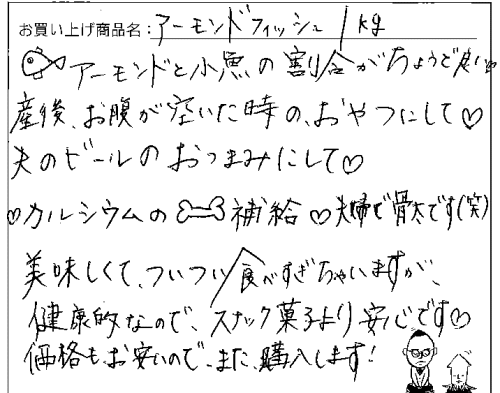 お買い上げ商品名：アーモンドフィッシュ 1kg
アーモンドと小魚の割合がちょうど良い。
産後、お腹が空いた時の、おやつにして♡
夫のビールのおつまみにして♡
♡カルシウムの補給♡夫婦で骨太です(笑)
美味しくて、ついつい食べすぎちゃいますが、
健康的なので、スナック菓子より安心です♡
価格も、お安いので、また、購入します!